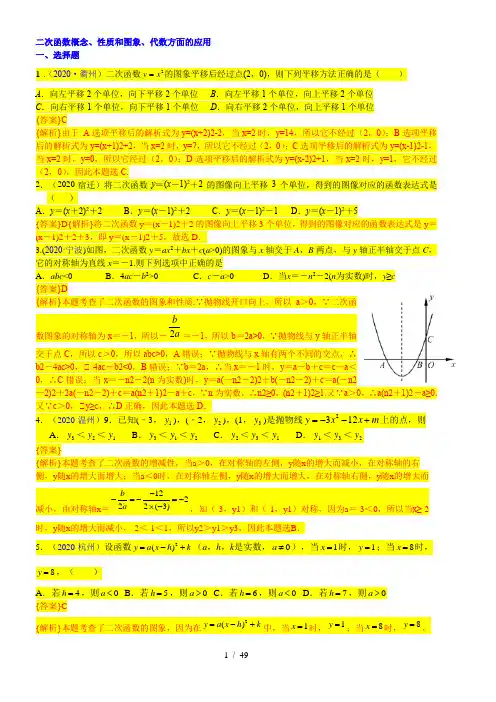 二次函数概念、性质和图象、代数方面的应用
一、选择题
1 .（2020·衢州）二次函数y=x²的图象平移后经过点(2，0)，则下列平移方法正确的是（ ）
A．向左平移2个单位，向下平移2个单位 B．向左平移1个单位，向上平移2个单位
C．向右平移1个单位，向下平移1个单位 D．向右平移2个单位，向上平移1个单位
{答案}C
{解析}由于 A选项平移后的解析式为y=(x+2)2-2，当x=2时，y=14，所以它不经过（2，0）；B选项平移
后的解析式为y=(x+1)2+2，当x=2时，y=7，所以它不经过（2，0）；C选项平移后的解析式为y=(x-1)2-1，
当x=2时，y=0，所以它经过（2，0）；D选项平移后的解析式为y=(x-2)2+1，当x=2时，y=1，它不经过
（2，0），因此本题选C．
2．（2020·宿迁）将二次函数y＝(x－1)²＋2的图像向上平移3个单位，得到的图像对应的函数表达式是
（ ）
A．y＝(x＋2)²＋2 B．y＝(x－1)²＋2 C．y＝(x－1)²－1 D．y＝(x－1)²＋5
{答案}D{解析}将二次函数y＝(x－1)2＋2的图像向上平移3个单位，得到的图像对应的函数表达式是y＝
(x－1)2＋2＋3，即y＝(x－1)2＋5，故选D．
3.(2020·宁波)如图，二次函数y＝ax²＋bx＋c(a>0)的图象与x轴交于A，B两点，与y轴正半轴交于点C，
它的对称轴为直线x＝－1.则下列选项中正确的是
A．abc<0 B．4ac－b²>0 C．c－a>0 D．当x＝－n²－2(n为实数)时，y≥c
{答案}D
{解析}本题考查了二次函数的图象和性质.∵抛物线开口向上，所以a＞0，∵二次函
数图象的对称轴为x＝－1，所以－b/2a＝－1，所以b＝2a>0，∵抛物线与y轴正半轴
交于点C，所以c＞0，所以abc>0，A错误；∵抛物线与x轴有两个不同的交点，∴
b2－4ac>0，∴4ac－b2<0，B错误；∵b＝2a，∴当x＝－1时，y＝a－b＋c＝c－a＜
0，∴C错误；当x＝－n2－2(n为实数)时，y＝a(－n2－2)2＋b(－n2－2)＋c＝a(－n2
－2)2＋2a(－n2－2)＋c＝a(n2＋1)2－a＋c，∵n为实数，∴n2≥0，(n2＋1)2≥1又∵a＞0，∴a(n2＋1)2－a≥0，
又∵c＞0，∴y≥c，∴D正确，因此本题选D．
y
C
A
B
O
x
4．（2020·温州）9．已知(﹣3，y₁)，(﹣2，y₂)，(1，y₃)是抛物线y=-3x²-12x+m上的点，则
A．y₃＜y₂＜y₁ B．y₃＜y₁＜y₂ C．y₂＜y₃＜y₁ D．y₁＜y₃＜y₂
{答案}
{解析}本题考查了二次函数的增减性，当a＞0，在对称轴的左侧，y随x的增大而减小，在对称轴的右
侧，y随x的增大而增大；当a＜0时，在对称轴左侧，y随x的增大而增大，在对称轴右侧，y随x的增大而
减小．由对称轴x＝-b/2a=-(-12)/(2×(-3))=-2，知（﹣3，y1）和（﹣1，y1）对称．因为a＝﹣3＜0，所以当x≥﹣2
时，y随x的增大而减小．﹣2＜﹣1＜1，所以y2＞y1＞y3，因此本题选B．
5．（2020·杭州）设函数y=a(x-h)²+k（a，h，k是实数，a≠0），当x=1时，y=1；当x=8时，
y=8，（ ）
A．若h=4，则a<0 B．若h=5，则a>0 C．若h=6，则a<0 D．若h=7，则a>0
{答案}C
{解析}本题考查了二次函数的图象，因为在y=a(x-h)²+k中，当x=1时，y=1；当x=8时，y=8，
1 / 49